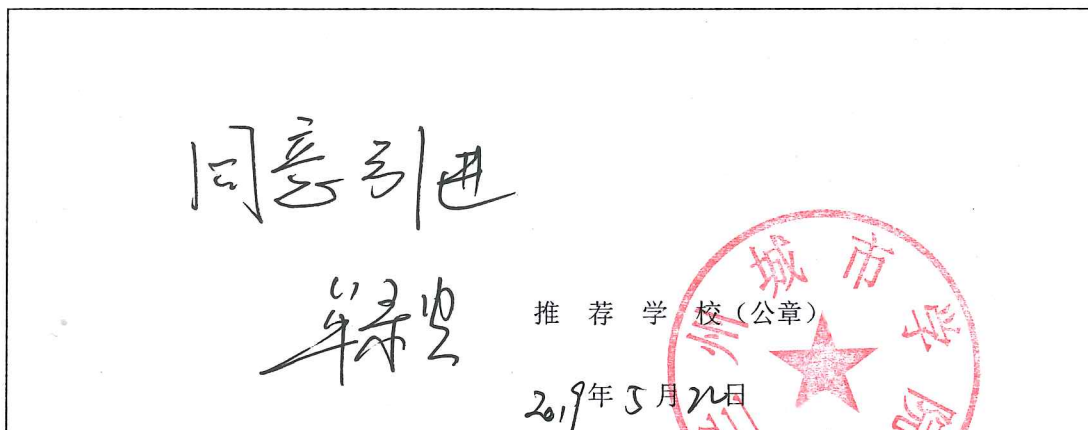 同意引进
推荐学校(公章)
2019年5月22日
兰州城市学院